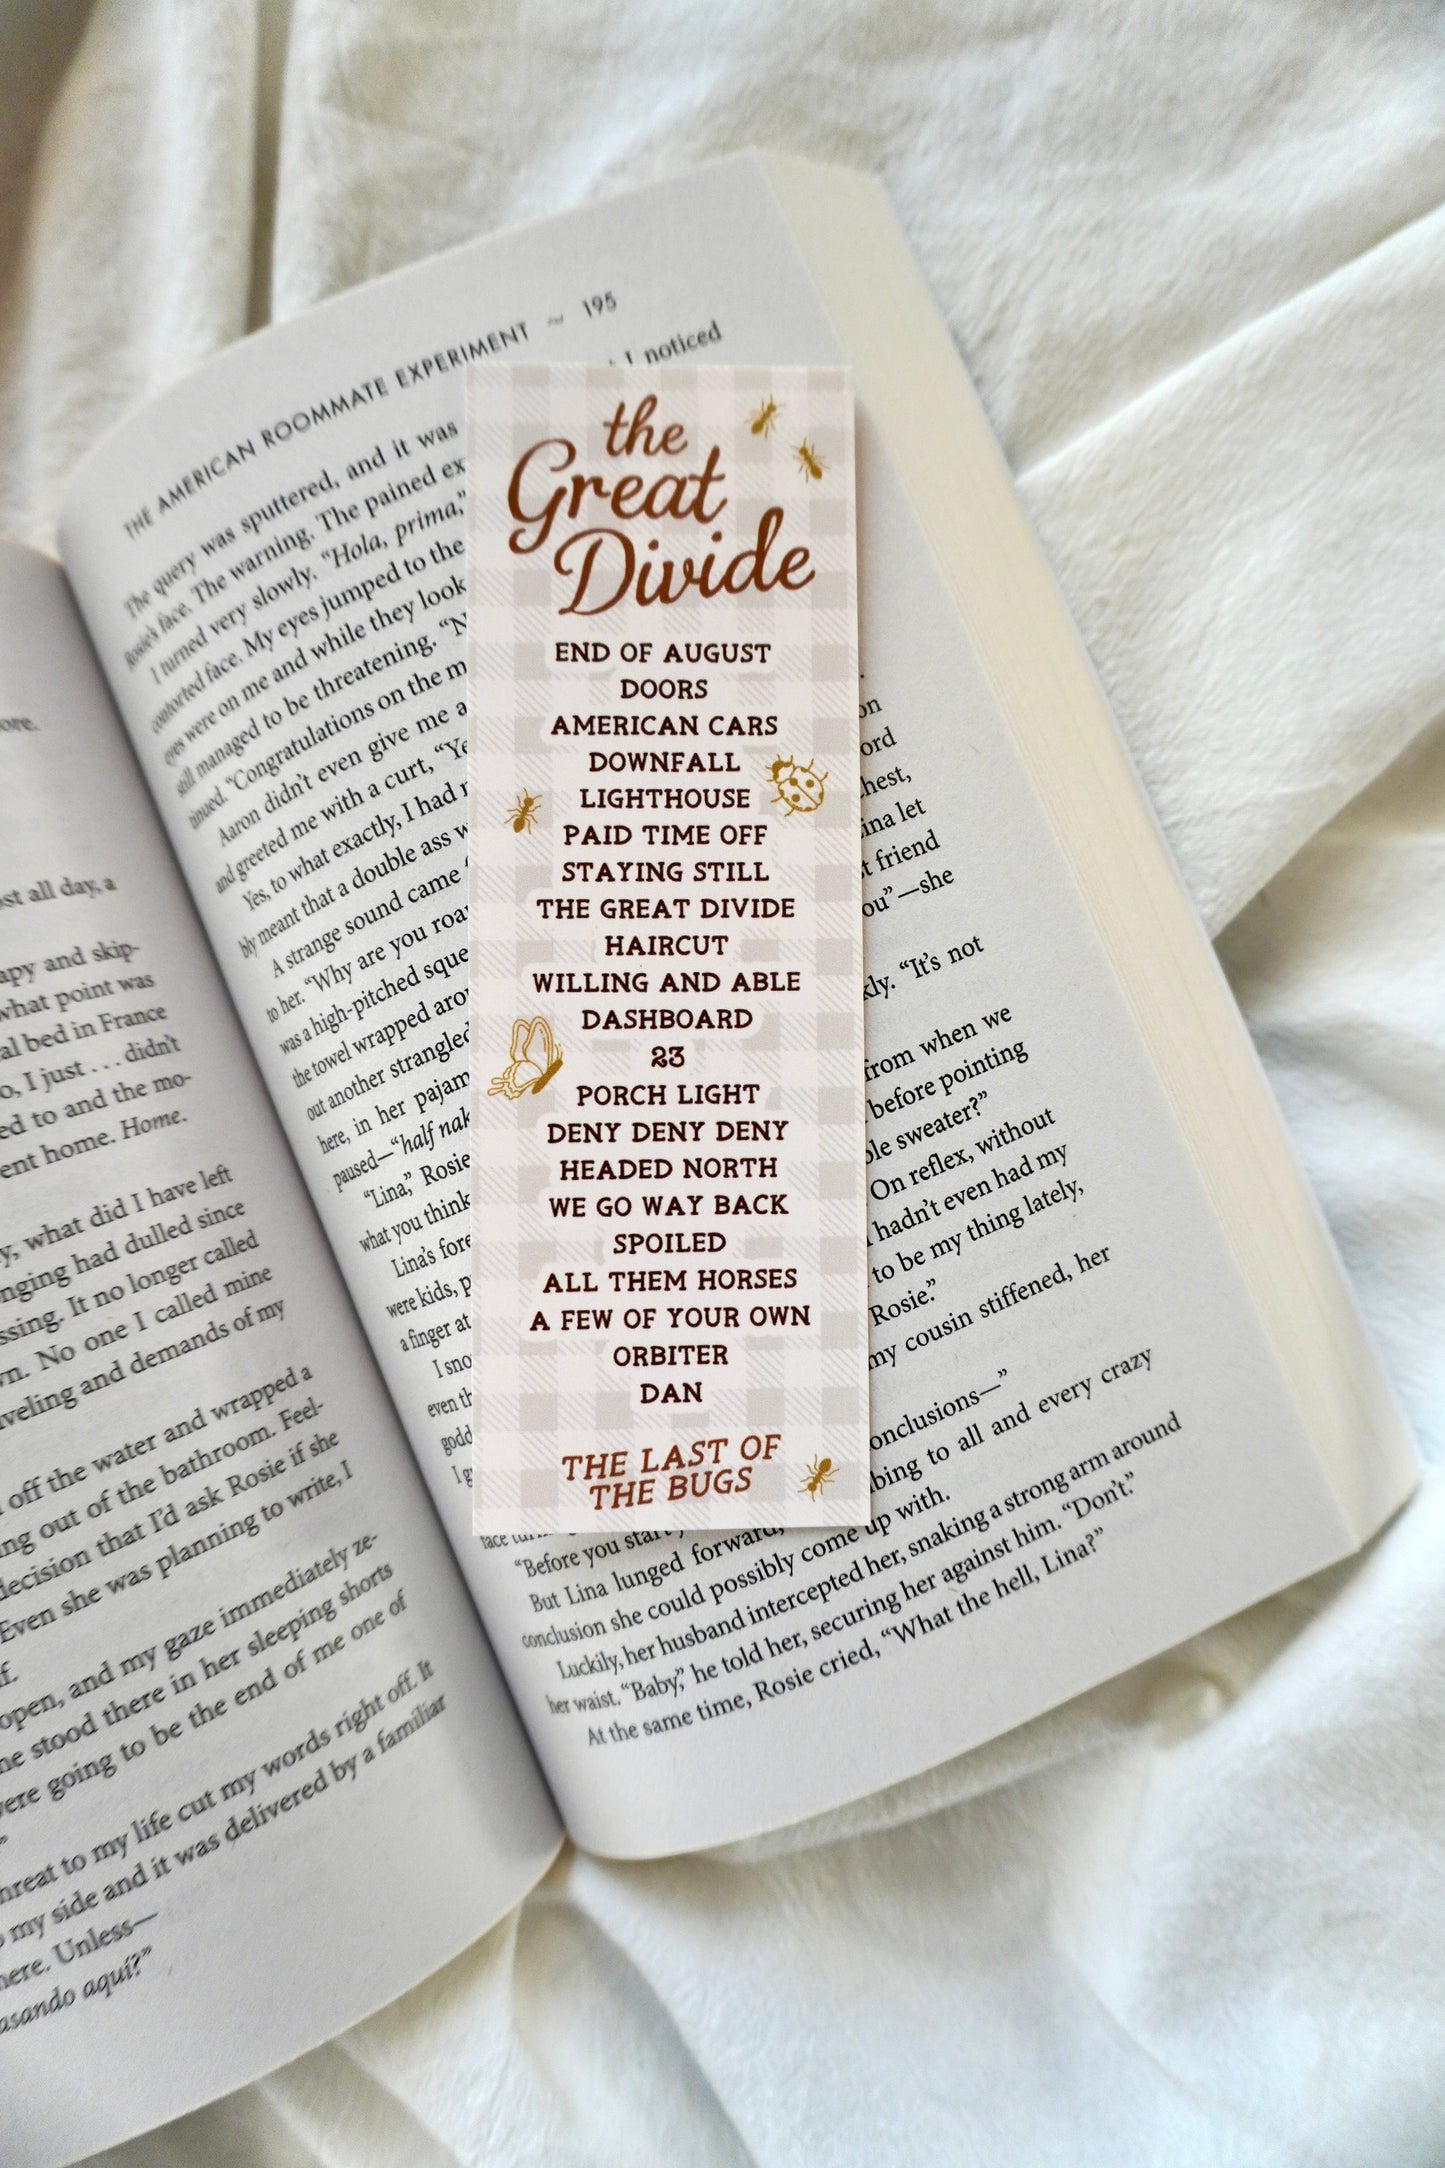 ore.
st all day, a
apy and skip-
what point was
al bed in France
o, I just . . . didn't
ed to and the mo-
ent home. Home.
y, what did I have left
nging had dulled since
ssing. It no longer called
wn. No one I called mine
veling and demands of my
off the water and wrapped a
ng out of the bathroom. Feel-
decision that I'd ask Rosie if she
Even she was planning to write, I
f.
open, and my gaze immediately ze-
ne stood there in her sleeping shorts
were going to be the end of me one of
”
hreat to my life cut my words right off. It
o my side and it was delivered by a familiar
here. Unless—
asando aquí?”
THE AMERICAN ROOMMATE EXPERIMENT ~ 195
I noticed
The query was sputtered, and it was
Rosie's face. The warning. The pained ex
I turned very slowly. “Hola, prima,”
contorted face. My eyes jumped to the
eyes were on me and while they look
still managed to be threatening. “N
tinued. “Congratulations on the m
Aaron didn't even give me a
and greeted me with a curt, “Ye
Yes, to what exactly, I had n
bly meant that a double ass w
A strange sound came
to her. “Why are you roar
was a high-pitched sque
the towel wrapped arou
out another strangled
here, in her pajam
paused—“half nak
“Lina,” Rosie
what you think
Lina's fore
were kids, p
a finger at
I sno
even th
godd
I g
the
Great
Divide
END OF AUGUST
DOORS
AMERICAN CARS
DOWNFALL
LIGHTHOUSE
PAID TIME OFF
STAYING STILL
THE GREAT DIVIDE
HAIRCUT
WILLING AND ABLE
DASHBOARD
23
PORCH LIGHT
DENY DENY DENY
HEADED NORTH
WE GO WAY BACK
SPOILED
ALL THEM HORSES
A FEW OF YOUR OWN
ORBITER
DAN
THE LAST OF
THE BUGS
on
ord
hest,
ina let
t friend
ou”—she
kly. “It's not
from when we
before pointing
ole sweater?”
On reflex, without
I hadn't even had my
to be my thing lately,
Rosie.”
my cousin stiffened, her
onclusions—”
bing to all and every crazy
face
“Before you start
But Lina lunged forward, up with.
conclusion she could possibly come
Luckily, her husband intercepted her, snaking a strong arm around
her waist. “Baby,” he told her, securing her against him. “Don't.”
At the same time, Rosie cried, “What the hell, Lina?”